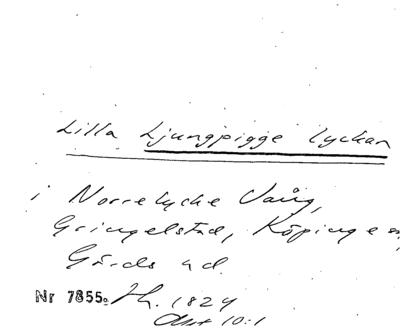 Lilla Ljungpigge lyckan
i Norrelycke Vång,
Gringelstad, Köpinge
Gärds hd.
Nr 7855. Hh. 1824
Akt 10:1